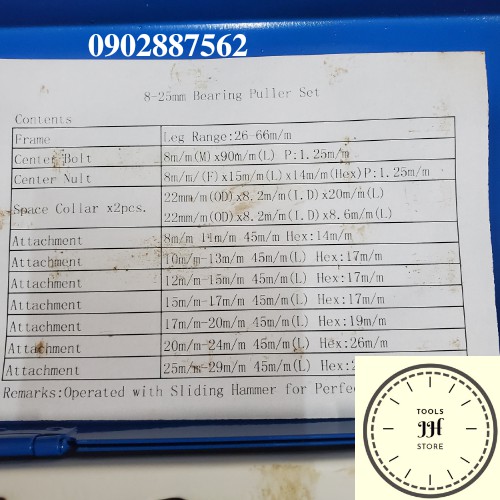 0902887562
8-25mm Bearing Puller Set
Contents
Frame Leg Range:26-66m/m
Center Bolt 8m/m(M)x90m/m(L) P:1.25m/m
Center Nult 8m/m/(F)x15m/m(L)x14m/m(Hex)P:1.25m/m
Space Collar x2pcs. 22mm/m(OD)x8.2m/m(I.D)x20m/m(L)
22mm/m(OD)x8.2m/m(I.D)x8.6m/m(L)
Attachment 8m/m 14m/m 45m/m Hex:14m/m
Attachment 10m/m-13m/m 45m/m(L) Hex:17m/m
Attachment 12m/m-15m/m 45m/m(L) Hex:17m/m
Attachment 15m/m-17m/m 45m/m(L) Hex:17m/m
Attachment 17m/m-20m/m 45m/m(L) Hex:19m/m
Attachment 20m/m-24m/m 45m/m(L) Hex:26m/m
Attachment 25m/m-29m/m 45m/m(L) Hex:
Remarks:Operated with Sliding Hammer for
TOOLS
STORE